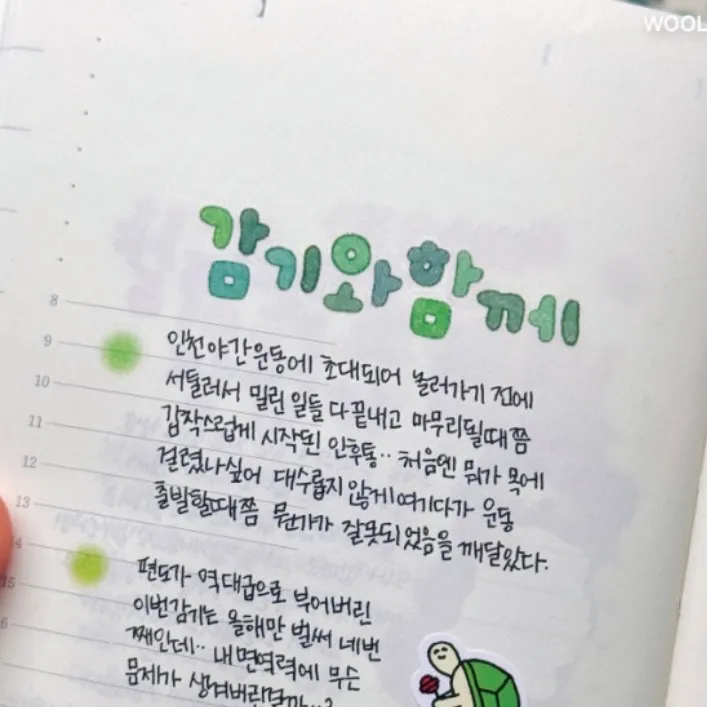 WOOL
감기와함께
8
9
10
11
12
13
14
15
6
인천야간운동에 초대되어 놀러가기 전에
서둘러서 밀린 일들 다 끝내고 마무리될때쯤
갑작스럽게 시작된 인후통.. 처음엔 뭐가 목에
걸렸나싶어 대수롭지 않게 여기다가 운동
출발할때쯤 뭔가가 잘못되었음을 깨달았다.
편도가 역대급으로 부어버린
이번감기는 올해만 벌써 네번
째인데.. 내면역력에 무슨
문제가 생겨버린걸까..?